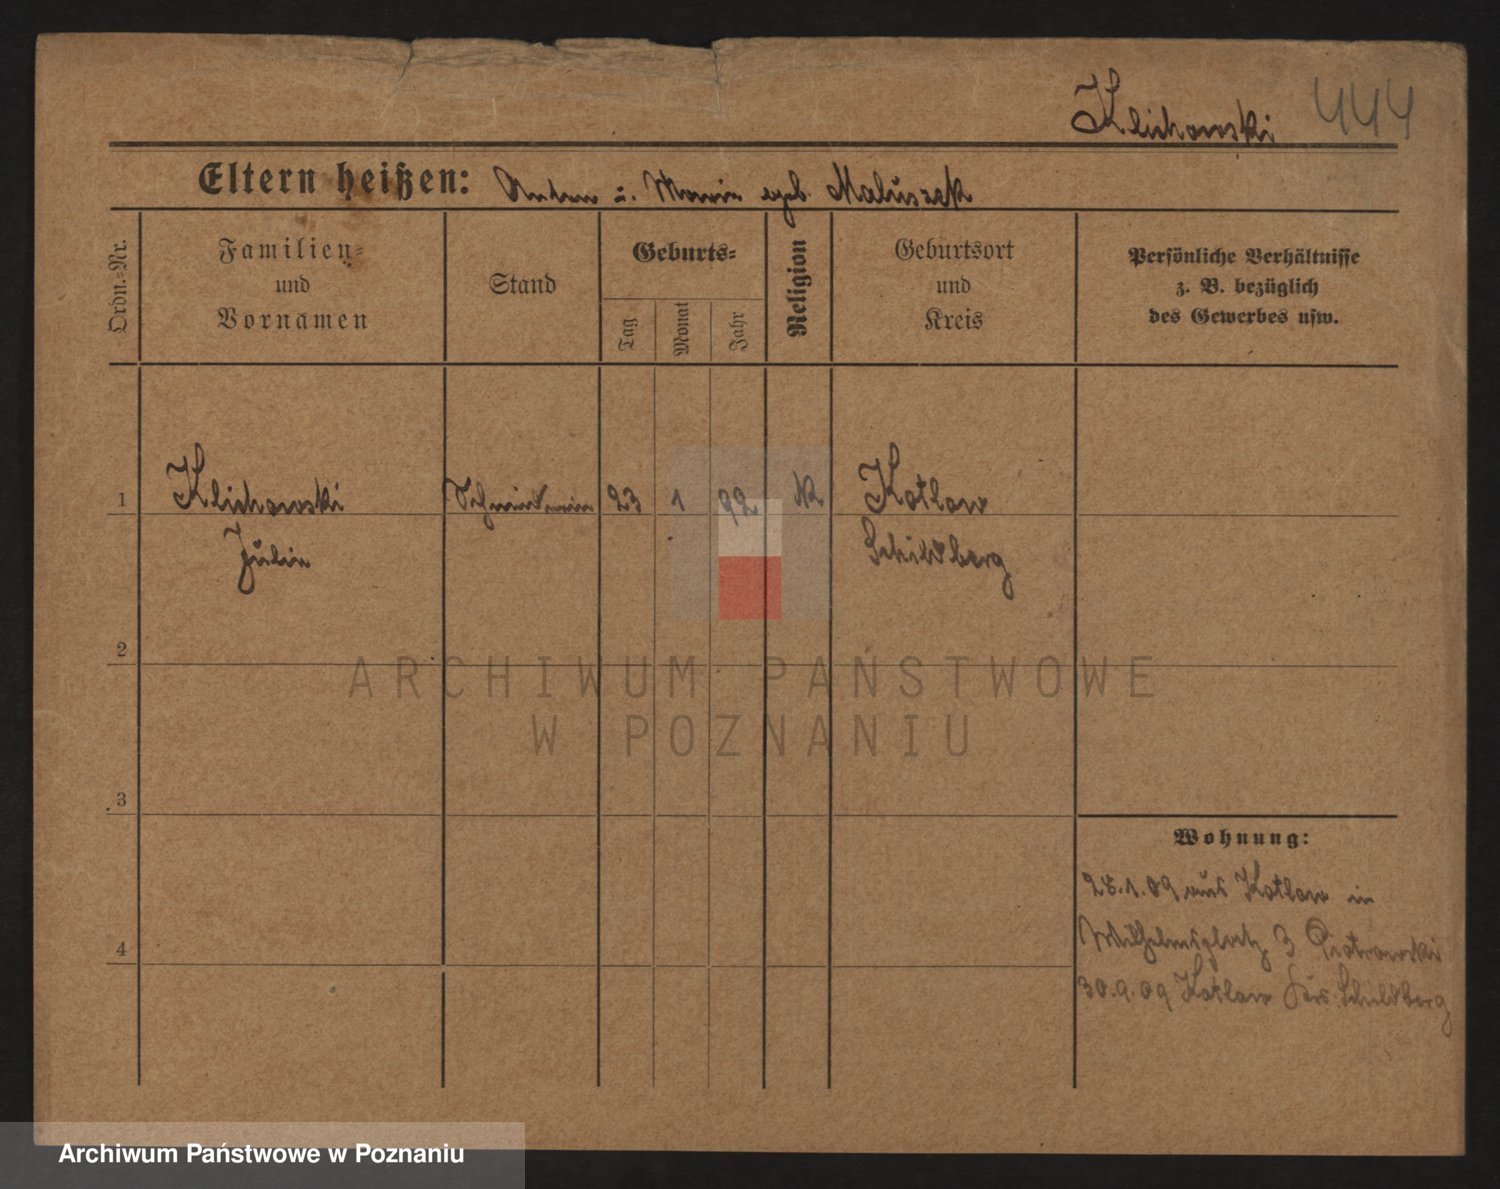 Klichowski 444
Eltern heißen: Anton u. Maria geb. Maluszek
Ordn.=Nr.
Familien=
und
Vornamen
Stand
Geburts=
Tag
Monat
Jahr
Religion
Geburtsort
und
Kreis
Persönliche Verhältnisse
z. B. bezüglich
des Gewerbes usw.
1 Klichowski 23 1 92 K Kotlow
Julia Schildberg
2
3
4
Wohnung:
28.1.09 aus Kotlow in
Wilhelmsplatz 3 Piotrowski
30.9.09 Kotlow Krs. Schildberg
ARCHIWUM PAŃSTWOWE
W POZNANIU
Archiwum Państwowe w Poznaniu